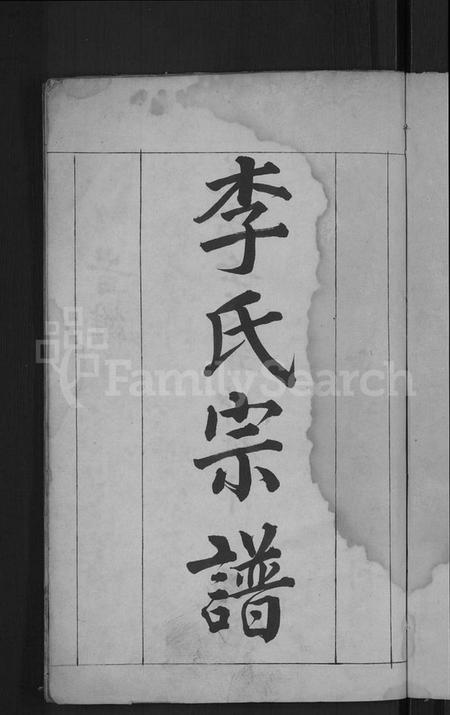 李氏宗譜
FamilySearch